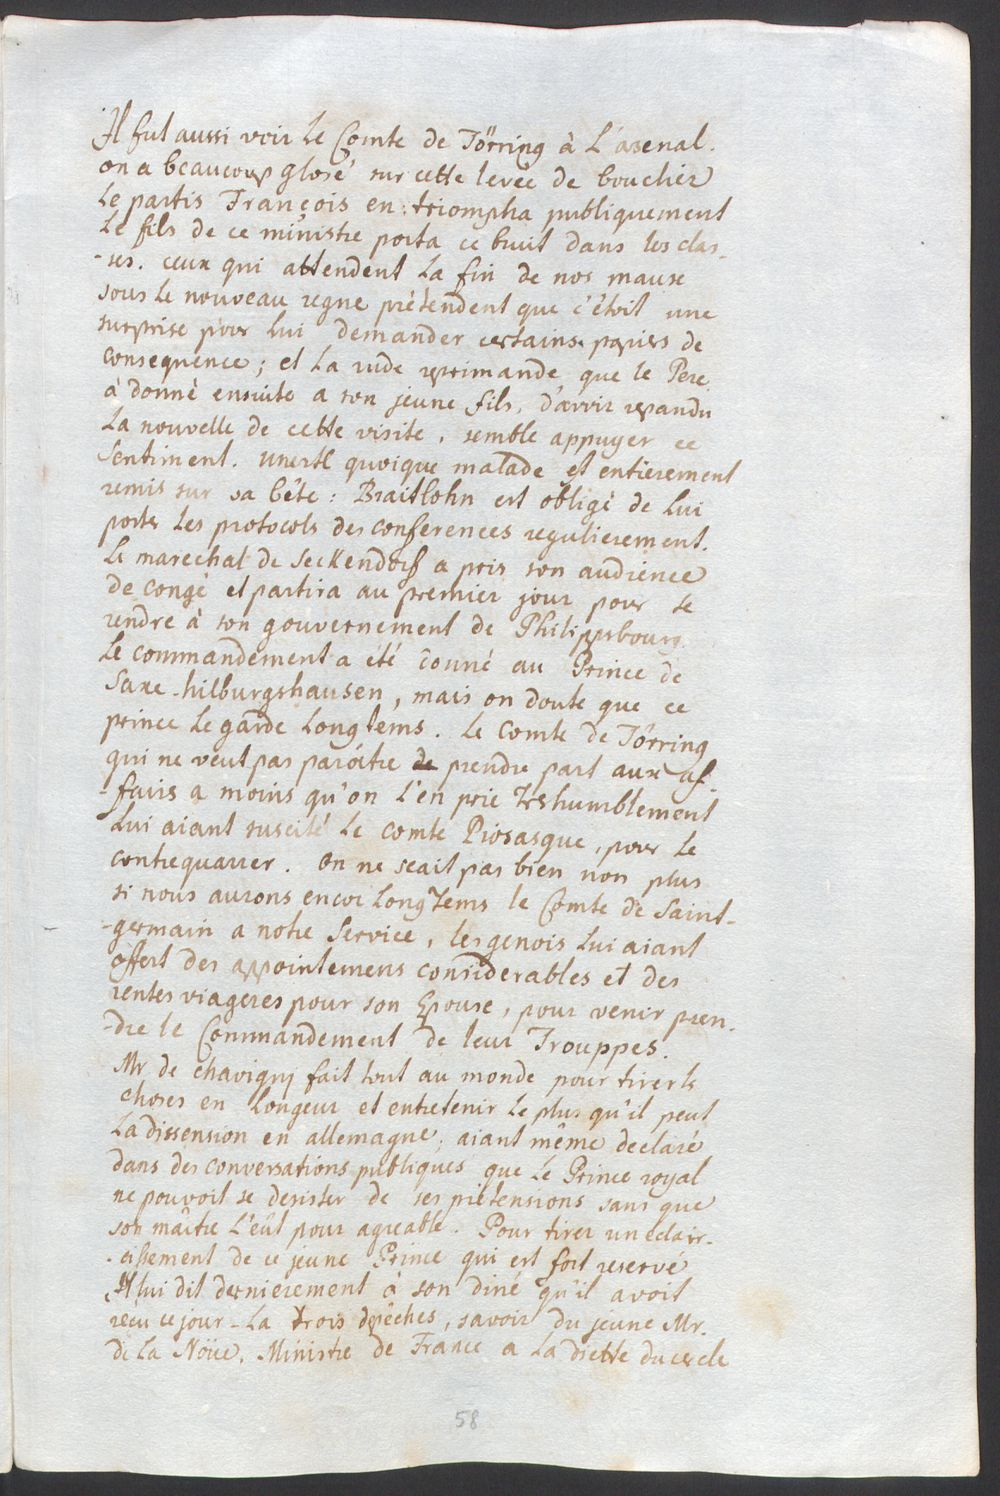 Il fut aussi voir le Comte de Törring à L'arsenal.
on a beaucoup glosé sur cette levée de bouclier
Le partis François en triompha publiquement
Le fils de ce ministre porta ce bruit dans les clas-
-ses. ceux qui attendent la fin de nos maux
sous le nouveau regne prétendent que c'étoit une
surprise pour lui demander certains papiers de
consequence; et la rude reprimande que le Pere
à donné ensuite a son jeune fils, d'avoir repandu
La nouvelle de cette visite, semble appuyer ce
sentiment. unertl quoique malade est entierement
remis sur sa bête: Braitlohn est obligé de lui
porter les protocols des conferences regulierement.
Le marechal de Seckendorf a pris son audience
de congé et partira au premier jour pour se
rendre à son gouvernement de Philippsbourg
Le commandement a été donné au Prince de
Saxe-hilburgshausen, mais on doute que ce
prince le garde longtems. Le Comte de Törring
qui ne veut pas paroître de prendre part aux af-
-faires a moins qu'on l'en prie treshumblement
Lui aiant suscité le comte Piosasque, pour le
contrequarrer. On ne scait pas bien non plus
si nous aurons encor longtems le Comte de Saint-
-germain a notre Service, les genois lui aiant
offert des appointemens considerables et des
rentes viageres pour son Epouse, pour venir pren-
-dre le Commandement de leur Trouppes.
Mr de chavigny fait tout au monde pour tirer les
choses en longeur et entretenir le plus qu'il peut
La dissension en allemagne, aiant même declaré
dans des conversations publiques que le Prince royal
ne pouvoit se desister de ses prétensions sans que
son maître l'eût pour agreable. Pour tirer un éclair-
-cissement de ce jeune Prince qui est fort reservé
Il lui dit dernierement à son diné qu'il avoit
recu ce jour-la trois depêches, savoir du jeune Mr.
de la Nöue, Ministre de France a la diette du cercle
58